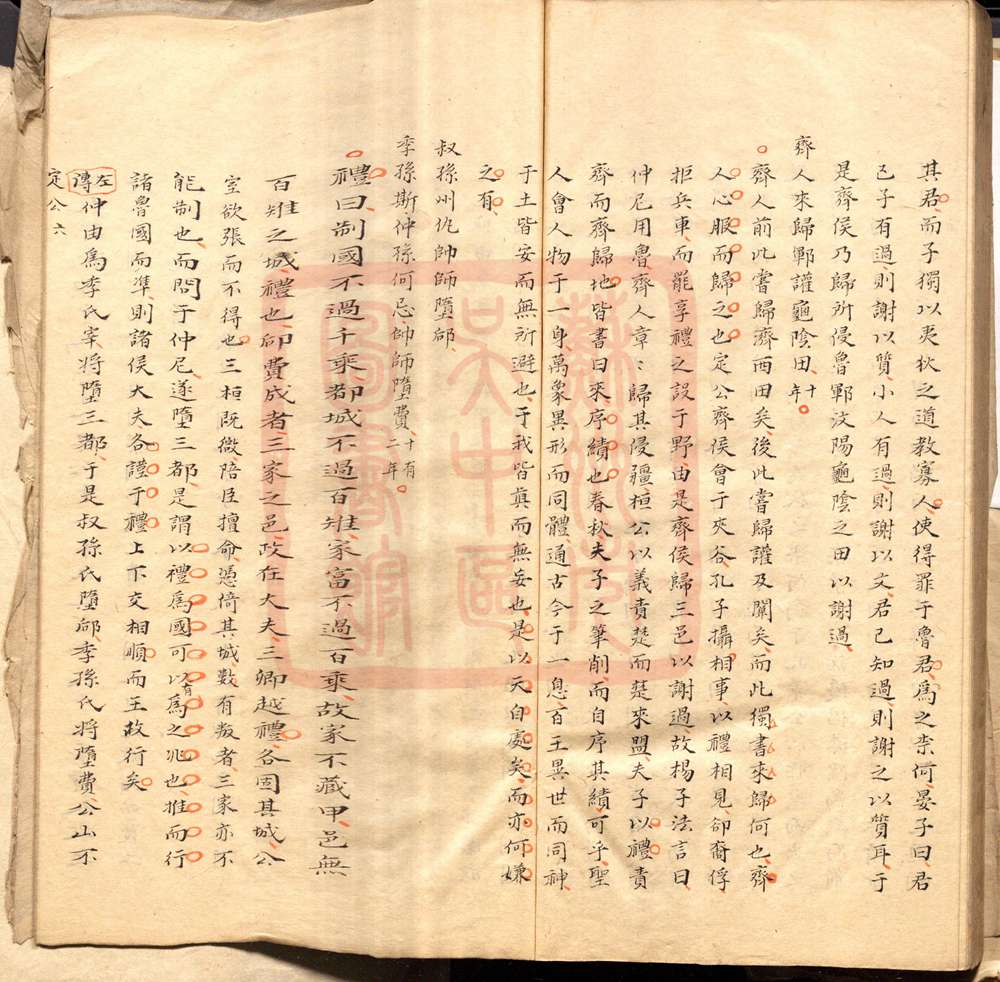 其君而子獨以夷狄之道教寡人使得罪于魯君為之柰何晏子曰君
己子有過則謝以質小人有過則謝以文君已知過則謝之以質耳于
是齊侯乃歸所侵魯鄆汶陽龜陰之田以謝過
齊人來歸鄆讙龜陰田十年
齊人前此嘗歸濟西田矣後此嘗歸讙及闡矣而此獨書來歸何也齊
人心服而歸之也定公齊侯會于夾谷孔子攝相事以禮相見卻裔俘
拒兵車而罷享禮之設于野由是齊侯歸三邑以謝過故楊子法言曰
仲尼用魯齊人章：歸其侵疆桓公以義責楚而楚來盟夫子以禮責
齊而齊歸地皆書曰來序績也春秋夫子之筆削而自序其績可乎聖
人會人物于一身萬象異形而同體通古今于一息百王異世而同神
于土皆安而無所避也于我皆真而無妄也是以天自處矣而亦何嫌
之有
叔孫州仇帥師墮郈
季孫斯仲孫何忌帥師墮費十有二年
禮曰制國不過千乘都城不過百雉家富不過百乘故家不藏甲邑無
百雉之城禮也郈費成者三家之邑政在大夫三卿越禮各固其城公
室欲張而不得也三桓既微陪臣擅命憑倚其城數有叛者三家亦不
能制也而問于仲尼遂墮三都是謂以禮為國可以有為之兆也推而行
諸魯國而準則諸侯大夫各謹于禮上下交相順而王政行矣
左傳仲由為季氏宰將墮三都于是叔孫氏墮郈季孫氏將墮費公山不
定公六
蘇州市
吳中區
圖書館